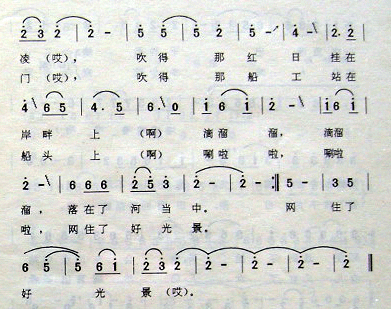 2 3 2 | 2 - | 5 5 | 5 5 | 2 - | 5 - | 4 - | 2. 2 |
凌（哎）， 吹 得 那 红 日 挂在
门（哎）， 吹 得 那 船 工 站在
4 6 5 | 4. 5 | 6. 0 | i 6 i | 2 - | i 6 i |
岸 畔 上 （啊） 滴溜 溜， 滴溜
船 头 上 （啊） 唰啦 啦， 唰啦
2 - | 6 6 6 | 2 5 3 | 2 - | 2 - :‖ 5 - | 3 5 |
溜， 落在了 河 当 中。 网 住了
啦， 网住了 好 光 景。
6 5 | 5 6 i | 2 3 2 | 2 - | 2 - | 2 - | 2 ‖
好 光 景（哎）。